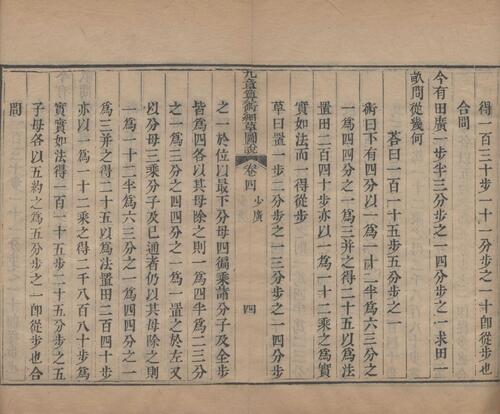 得一百三十步一十一分步之一十卽從步也
合問
今有田廣一步半三分步之一四分步之一求田一
畝問從幾何
荅曰一百一十五步五分步之一
術曰下有四分以一爲一十二半爲六三分之
一爲四四分之一爲三并之得二十五以爲法
置田二百四十步亦以一爲一十二乘之爲實
實如法而一得從步
草曰置一步二分步之一三分步之一四分步
九章算術細草圖說 卷四 少廣 四
之一於位以最下分母四徧乘諸分子及全步
皆爲四各以其母除之則一爲四半爲二三分
之一爲一三分之一四分之一爲一置之於左又
以分母三乘分子及已通者仍以其母除之則
一爲一十二半爲六三分之一爲四四分之一
爲三并之得二十五以爲法置田二百四十步
亦以一爲一十二乘之得二千八百八十步爲
實實如法得一百一十五步二十五分步之五
子母各以五約之爲五分步之一卽從步也合
問